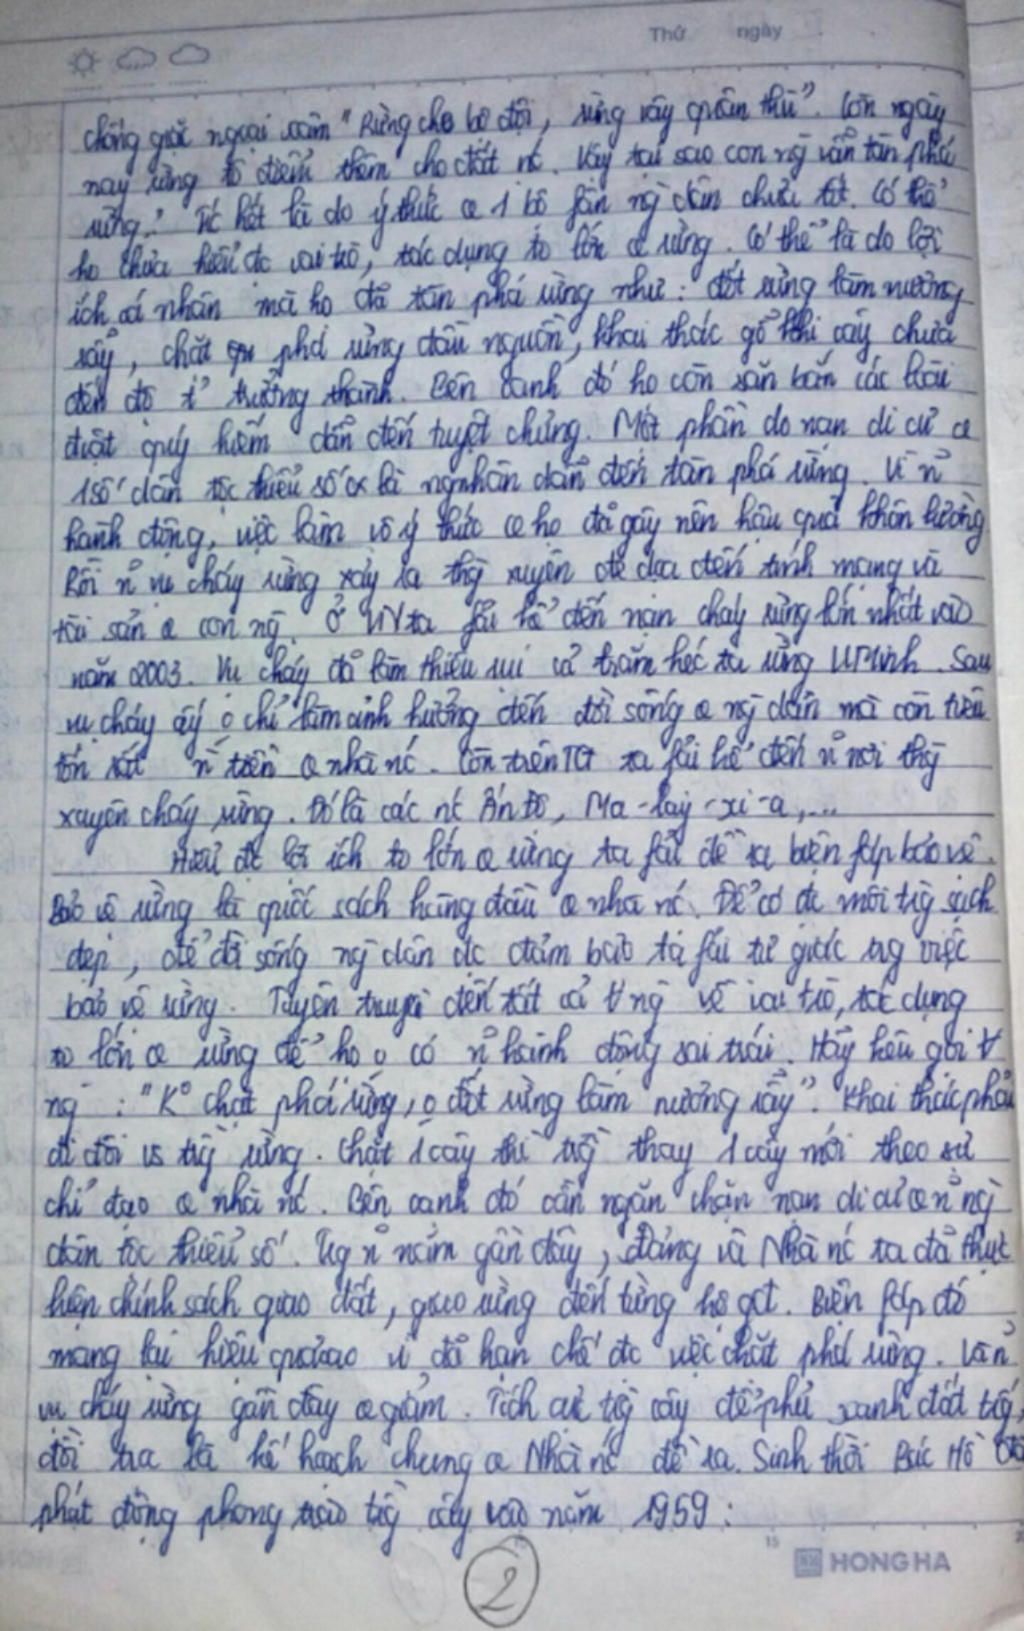 Thứ ngày
chống giặc ngoại xâm "Rừng che bộ đội, rừng vây quân thù". Còn ngày
nay rừng tô điểm thêm cho đất nc. Vậy tại sao con ng vẫn tàn phá
rừng? Tc hết là do ý thức @ 1 bộ fận ng dân chưa tốt. Có thể
họ chưa hiểu đc vai trò, tác dụng to lớn @ rừng. Có thể là do lợi
ích cá nhân mà họ đã tàn phá rừng như: đốt rừng làm nương
rẫy, chặt phá rừng đầu nguồn, khai thác gỗ khi cây chưa
đến độ trưởng thành. Bên cạnh đó họ còn săn bắn các loài
đvật quý hiếm dẫn đến tuyệt chủng. Một phần do nạn di cư @
1 số dân tộc thiểu số là ng nhân dẫn đến tàn phá rừng. Vì n~
hành động, việc làm vô ý thức @ họ đã gây nên hậu quả khôn lường
Rồi n~ vụ cháy rừng xảy ra thg xuyên đe dọa đến tính mạng và
tài sản @ con ng. Ở VN ta fải kể đến nạn cháy rừng lớn nhất vào
năm 2003. Vụ cháy đã làm thiêu rụi cả trăm héc ta rừng U Minh. Sau
vụ cháy ấy o chỉ làm ảnh hưởng đến đời sống @ ng dân mà còn tiêu
tốn rất n` tiền @ nhà nc. Còn trên TG ta fải kể đến n~ nơi thg
xuyên cháy rừng. Đó là các nc Ấn Độ, Ma-lay-xi-a,...
Hiểu đc lợi ích to lớn @ rừng ta fải đề ra biện fáp bảo vệ.
Bảo vệ rừng là quốc sách hàng đầu @ nhà nc. Để có đc môi trg sạch
đẹp, để đời sống ng dân đc đảm bảo ta fải tự giác trg việc
bảo vệ rừng. Tuyên truyền đến tất cả ∀ ng về vai trò, tác dụng
to lớn @ rừng để họ o có n~ hành động sai trái. Hãy kêu gọi ∀
ng : "Ko chặt phá rừng, o đốt rừng làm nương rẫy". Khai thác phải
đi đôi vs trg rừng. Chặt 1 cây thì trg thay 1 cây mới theo sự
chỉ đạo @ nhà nc. Bên cạnh đó cần ngăn chặn nạn di cư @ n~ ng
dân tộc thiểu số. Trg n~ năm gần đây, Đảng và Nhà nc ta đã thực
hiện chính sách giao đất, giao rừng đến từng hộ gđ. Biện fáp đó
mang lại hiệu quả cao vì đã hạn chế đc việc chặt phá rừng. Vấn
vụ cháy rừng gần đây giảm. Tích cực trg cây để phủ xanh đất trg,
đồi trọc là kế hoạch chung @ Nhà nc đề ra. Sinh thời Bác Hồ đã
phát động phong trào trg cây vào năm 1959:
2
HONG HA